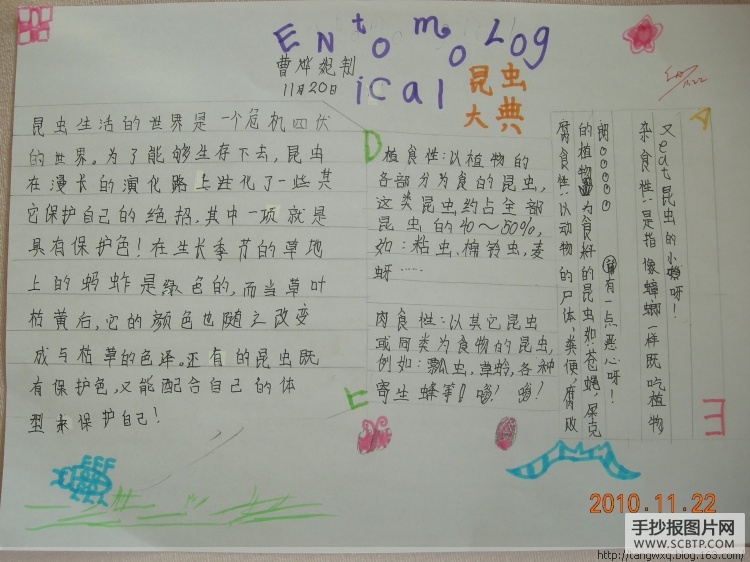 ENtomoLog
ical
昆虫
大典
曹烨妮制
11月20日
11.22
昆虫生活的世界是一个危机四伏
的世界。为了能够生存下去,昆虫
在漫长的演化路上进化了一些其
它保护自己的绝招,其中一项就是
具有保护色!在生长季节的草地
上的蚂蚱是绿色的,而当草叶
枯黄后,它的颜色也随之改变
成与枯草的色泽。还有的昆虫既
有保护色,又能配合自己的体
型来保护自己!
D
植食性:以植物的
各部分为食的昆虫,
这类昆虫约占全部
昆虫的40~50%,
如:粘虫、棉铃虫,麦
蚜……
肉食性:以其它昆虫
或同类为食物的昆虫,
例如:瓢虫,草蛉,各种
寄生蜂等!嗡!嗡!
A
又eat昆虫的小
呀!
杂食性:是指像蟑螂一样既吃植物
有一点恶心呀!
的植物为食
的昆虫如:苍蝇,屎壳
郎
腐食性:以动物的尸体,粪便,腐败
E
2010.11.22
手抄报图片网
WWW.SCBTP.COM
http://tangwxq.blog.163.com/